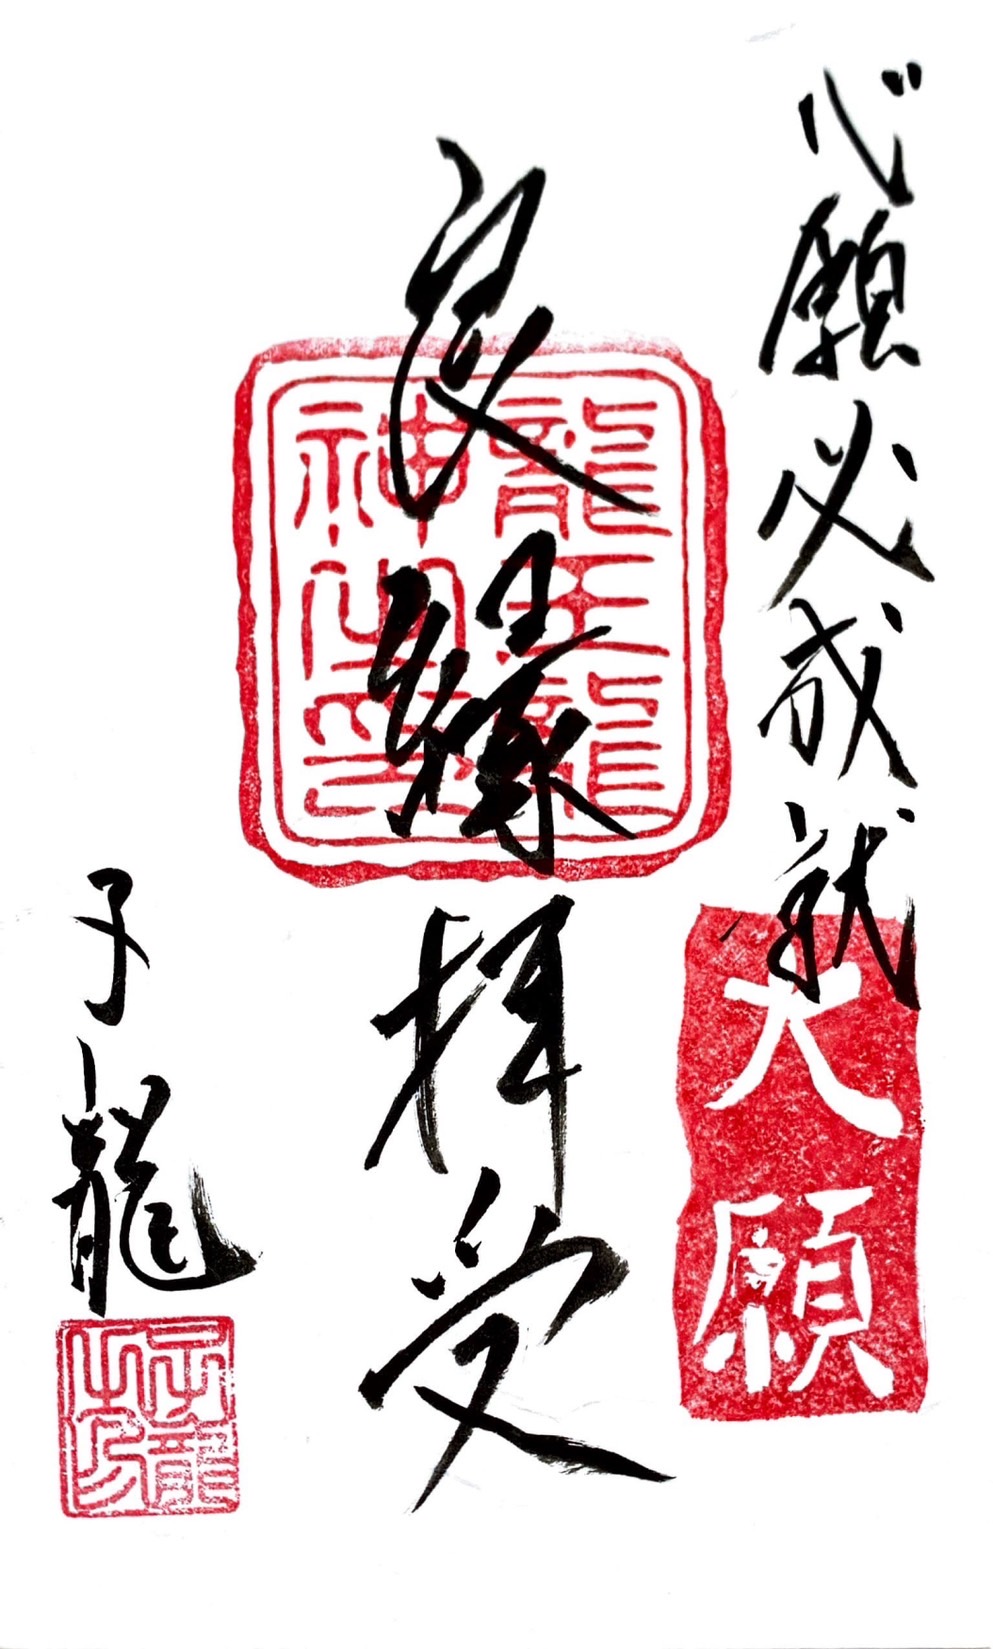 心願必成就
大願
良縁拝受
龍王龍
神之印
子龍
子龍
之印